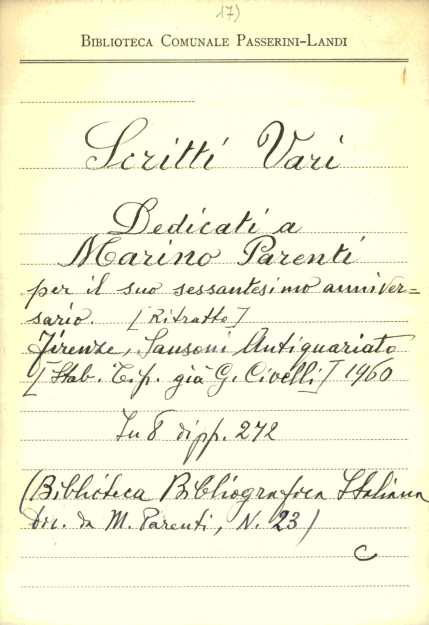 17)
BIBLIOTECA COMUNALE PASSERINI-LANDI
Scritti Vari
Dedicati a
Marino Parenti
per il suo sessantesimo anniver=
sario. [Ritratto]
Firenze, Sansoni Antiquariato
[Stab. Tip. già G. Civelli] 1960
In 8 di pp. 272
(Biblioteca Bibliografica Italiana
Dir. da M. Parenti, N. 23)
C